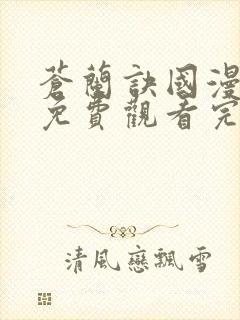 蒼蘭訣國漫
免費觀看完
清風戀飄雪